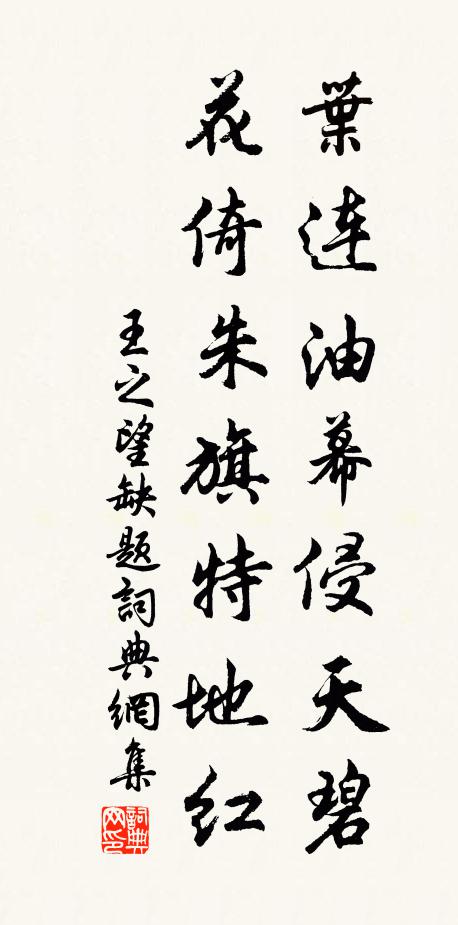 葉連油幕侵天碧
花倚朱旗特地红
王之望缺题詞典網集
詞典网印